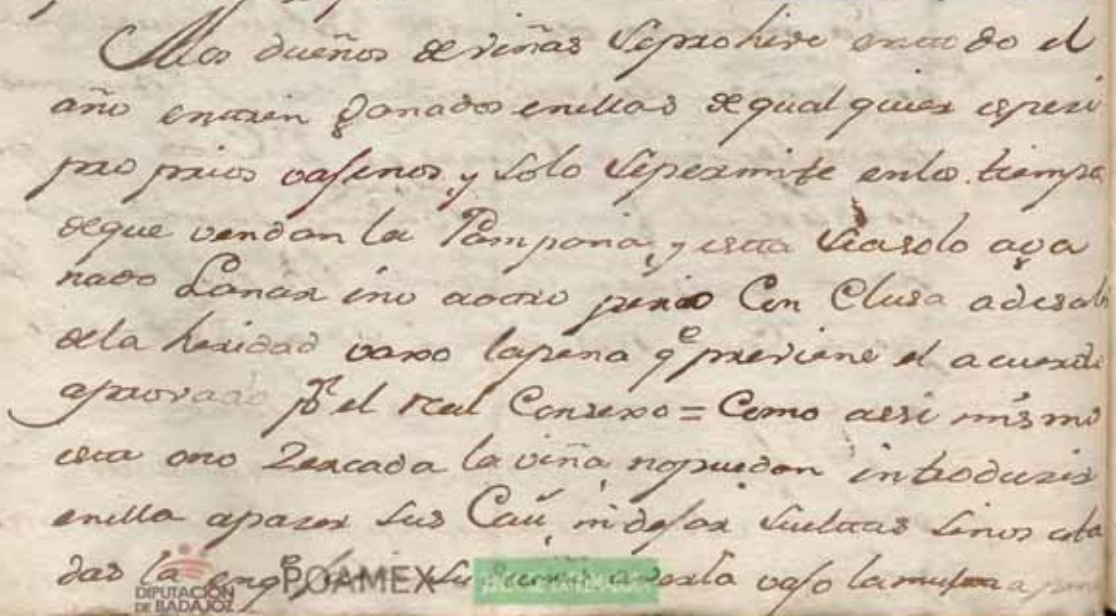 Alos dueños de viñas se prohive en todo el
año entren ganados en ellas de qualquier espezi
proprios o ajenos, y solo se permite en los tiempo
de que vendan la Pampana, y esta sea solo a ga
nado Lanar i no a otro
de la heridad vaxo la pena q.e previene el acuerdo
aprovado p.r el real Consexo = Como assi mismo
esta o no Zercada la viña no puedan introduzir
en ella a pazer sus Cav, ni dejar sueltas sinos ata
das la
vajo la misma
DIPUTACIÓN
DE BADAJOZ
POAMEX